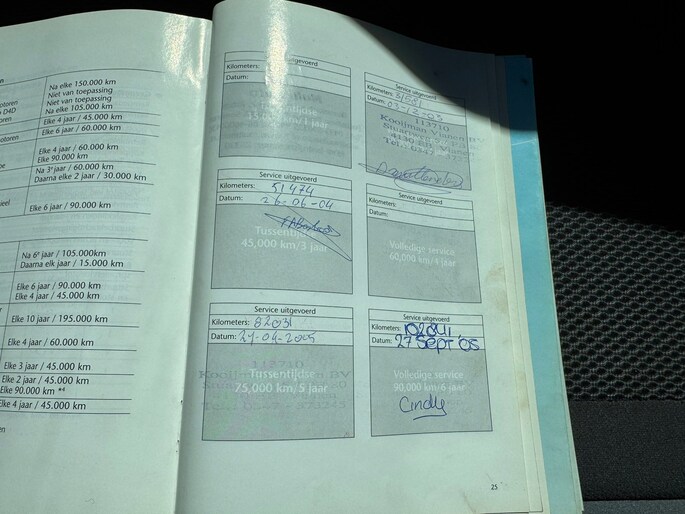 Na elke 150.000 km
Niet van toepassing
Niet van toepassing
Na elke 105.000 km
Elke 4 jaar / 45.000 km
Elke 6 jaar / 60.000 km
Elke 4 jaar / 60.000 km
Elke 90.000 km
Na 3e jaar / 60.000 km
Daarna elke 2 jaar / 30.000 km
Elke 6 jaar / 90.000 km
Na 6e jaar / 105.000km
Daarna elk jaar / 15.000 km
Elke 6 jaar / 90.000 km
Elke 4 jaar / 45.000 km
Elke 10 jaar / 195.000 km
Elke 4 jaar / 60.000 km
Elke 3 jaar / 45.000 km
Elke 2 jaar / 45.000 km
Elke 90.000 km **
Elke 4 jaar / 45.000 km
Service uitgevoerd
Kilometers:
Datum:
Tussentijdse
15,000 km/1 jaar
Service uitgevoerd
Kilometers:
Datum:
113710
Kooijman Vianen B.
Service uitgevoerd
Kilometers: 51474
Datum: 26-06-04
Tussentijdse
45,000 km/3 jaar
Service uitgevoerd
Kilometers:
Datum:
Volledige service
60,000 km/4 jaar
Service uitgevoerd
Kilometers: 82031
Datum: 29-04-2005
113710
Tussentijdse
75,000 km/5 jaar
Service uitgevoerd
Kilometers:
Datum: 27 Sept '05
Volledige service
90,000 km/6 jaar
Cindy
25